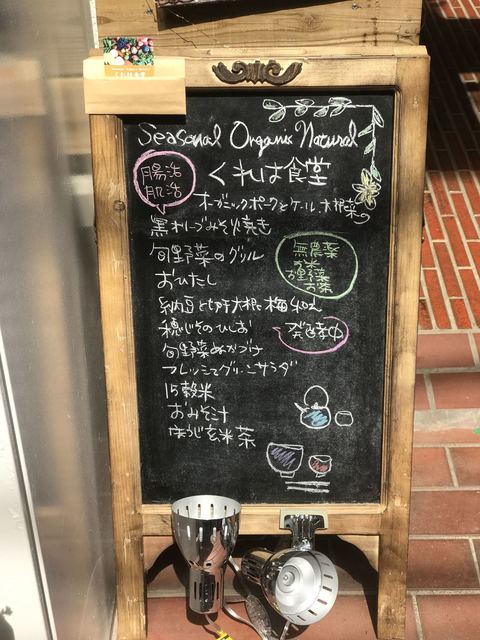 Seasonal Organic Natural
くれは食堂
腸活
肌活
オーガニックポークとケール、大根菜
黒オリーブみそ炒め焼き
旬野菜のグリル
おひたし
無農薬
お米
お野菜
お茶
納豆と切干大根と梅
穂じそのひしお
発酵
旬野菜ぬか漬け
フレッシュグリーンサラダ
15穀米
おみそ汁
ほうじ玄米茶